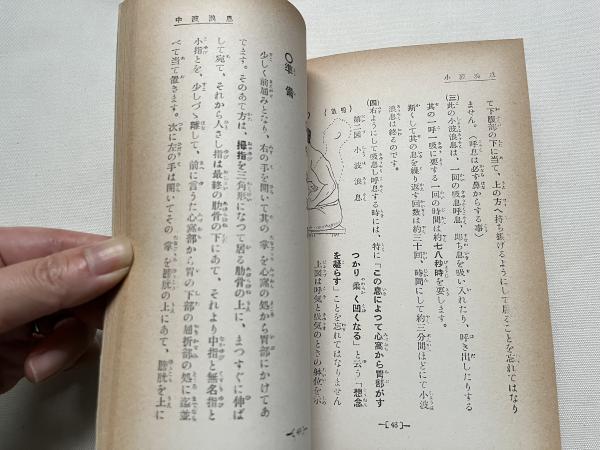 小波浪息
て下腹部の下に当て、上の方へ持ち拡げるようにして居ることを忘れてはなり
ません。(呼息は必ず鼻からする事)
(三)此の小波浪息は、一回の吸息呼息、即ち息を吸い入れたり、呼き出したりする
其の一呼一吸に要する一回の時間は約七八秒時を要します。
類くして其の息を繰り返す回数は約三十回、時間にして約三分間ほどにて小波
浪息は終るのです。
(四)右ようにして吸息し呼息する時には、特に「この息によつて心窩から胃部がす
つかり柔く凹くなる」と云う「想念
を凝らす」ことを忘れてはなりません
上図は呼気と吸気のときの躰位を示
第二図 小波浪息
—〔48〕—
中波浪息
〇準備
少しく前屈みとなり、右の手は開いて其の掌を心窩の処から胃部にかけてあ
てます。そのあて方は、拇指を三角形になつて居る肋骨の上に、まつすぐに伸ば
して宛て、それから人さし指は最終の肋骨の下にあて、それより中指と無名指と
小指とを、少しづゝ離して、前に言うた心窩部から胃の下部の屈折部の処に迄並
べて当て置きます。次に左の手は開いてその掌を膀胱の上にあて、膀胱を上に